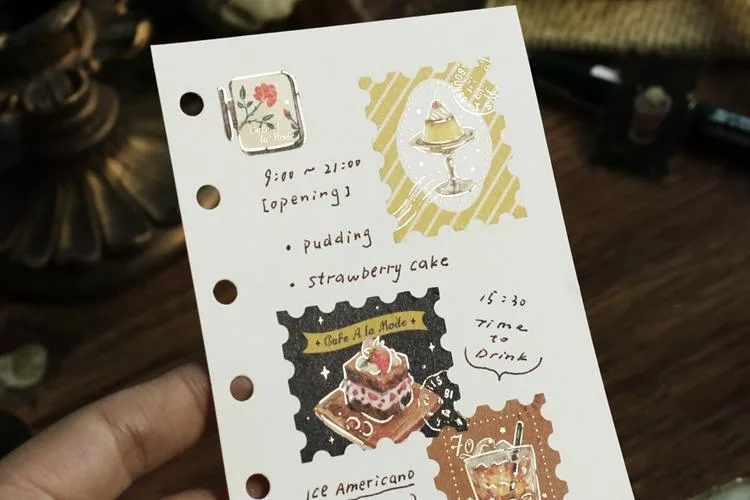 Cafe A
la Mode
9:00 ~ 21:00
[opening]
• pudding
• strawberry cake
Cafe A la Mode
15:30
Time
to
Drink
Ice Americano